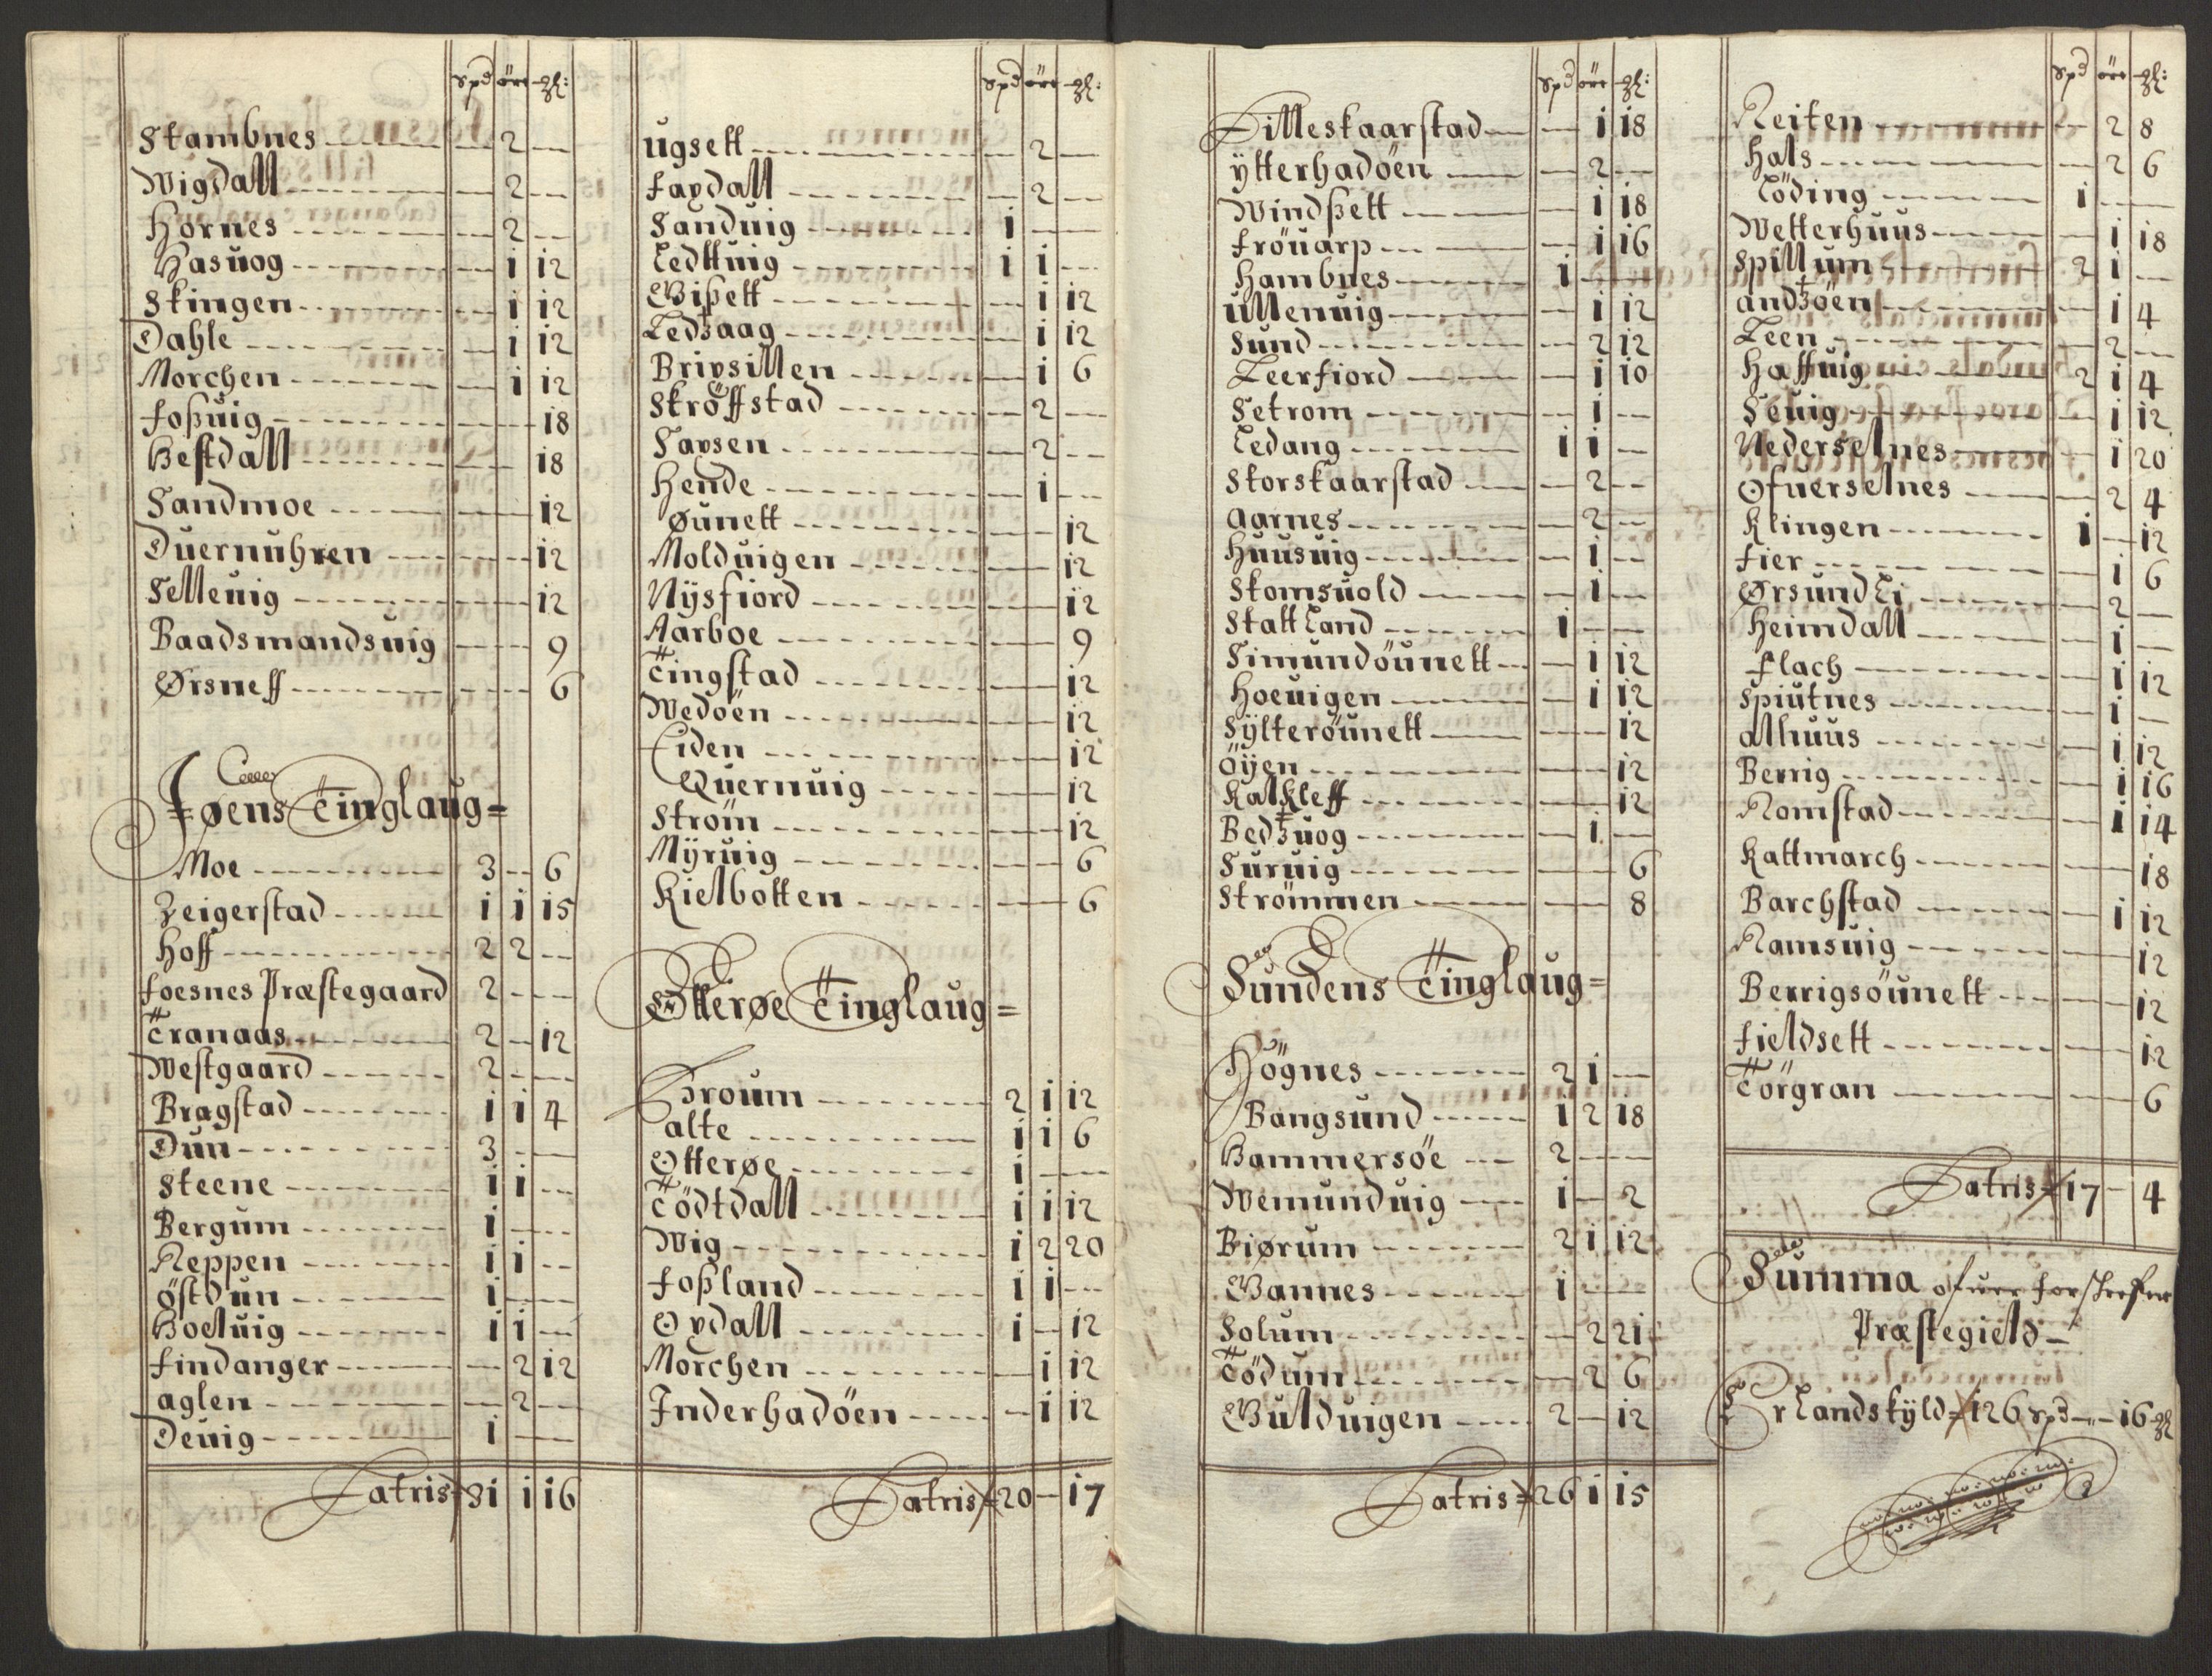 spd öre ꝳl:
Stambnes — 2 —
Wigdall — 2 —
Hornes — 2 —
Hasuog — 1 12
Skingen — 1 12
Dahle — 1 12
Morchen — 1 12
Foßuig — — 18
Bestdall — — 18
Sandmoe — — 12
Duernuhren — — 12
Selleuig — — 12
Baadsmandsuig — — 9
Ørsneff — — 6
Føens Tinglaug =
Moe 3 — 6
Zeigerstad 1 1 15
Hoff 2 2 —
Foesnes Præstegaard 2 — —
Tranaas 2 — 12
Westgaard 2 — —
Bragstad 1 1 4
Dun 3 — —
Steene 1 1 —
Bergum 1 — —
Reppen 1 1 —
östdun 1 — —
Boeluig 1 1 —
Findanger — 2 12
aglen — 2 —
Deuig 1 — —
Latris = 31 1 16
spd öre ꝳl:
ugsett — 2 —
Faydall — 2 —
Sanduig 1 — —
Ledttuig 1 1 —
Gvißett — 1 12
Ledzaag — 1 12
Brivsillen — 1 6
Ströffstad — 2 —
Saysen — 2 —
Hende — 1 —
Øunett — — 12
Molduigen — — 12
Nysfiord — — 12
Aarboe — — 9
Tingstad — — 12
Wedöen — — 12
Eiden — — 12
Quernuig — — 12
Ström — — 12
Myruig — — 6
Kielbotten — — 6
Otterøe Tinglaug =
Broum 2 1 12
alte 1 1 6
Otterøe 1 — —
Tödtdall 1 1 12
Wig 1 2 20
Foßland 1 1 —
Oydall 1 — 12
Morchen — 1 12
Inderhadöen — 1 12
Latris = 20 — 17
spd öre ꝳl:
Lilleskaarstad — 1 18
ytterhadöen — 2 —
Windßett — 1 18
Fröuarp — 1 16
Hambnes 1 — —
ullenuig — 1 12
Sund — 2 12
Leerfiord — 1 10
Setrom — 1 —
Ledang 1 1 —
Storskaarstad — 2 —
Aarnes — 2 —
Huusuig — 1 —
Skomsuold — 1 —
Stattland 1 — —
Simundöunett — 1 12
Hoeuigen — 1 12
Sylteröunett — — 12
öyen — — 12
Kalkleff — — 12
Bedzuog — 1 —
Suruig — — 6
Strömmen — — 8
Sundens Tinglaug =
Högnes 2 1 —
Bangsund 1 2 18
Bammersöe 2 — —
Wemunduig 1 — 2
Biørum 2 1 12
Gvannes 1 — —
Solum — 2 21
Tödum — 2 6
Gvulduigen 2 — 12
Latris = 26 1 15
spd öre ꝳl:
Reiten — 2 8
Hals — 2 6
Löding 1 — —
Wetterhuus — 1 18
Spillum 2 1 —
andzöen — 1 4
Leen — 2 —
Haffuig 2 1 4
Seuig — 1 12
Nederselnes — 1 20
Ofuerselnes — 2 4
Klingen 1 — 12
Fier — 1 6
Ørsundli — 2 —
Heimdall — 1 —
Flach — 1 12
Spiutnes — 1 —
alhuus — 1 12
Berrig — 1 16
Romstad — 1 14
Kattmarch — — 18
Barchstad — 1 12
Ramsuig — — 12
Berrigsöunett — — 12
Fieldsett — — 12
Törgran — — 6
Latris = 17 — 4
Summa ofuer forschrefne
Præstegield —
Er Landskyld = 126 spd — 16 ꝳl